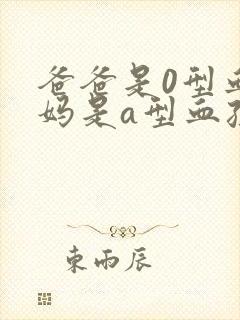 爸爸是0型血
妈是a型血孩
東雨辰